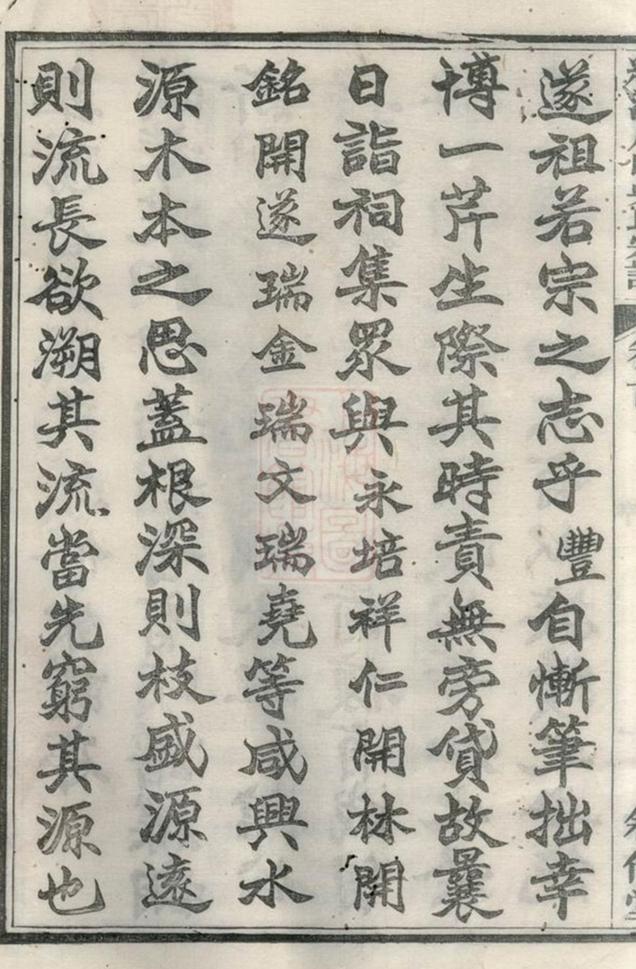 遂祖若宗之志乎豐自慚筆拙幸
博一芹生際其時責無旁貸故曩
日詣祠集眾與永培祥仁開林開
銘開遂瑞金瑞文瑞堯等咸興水
源木本之思蓋根深則枝盛源遠
則流長欲溯其流當先窮其源也